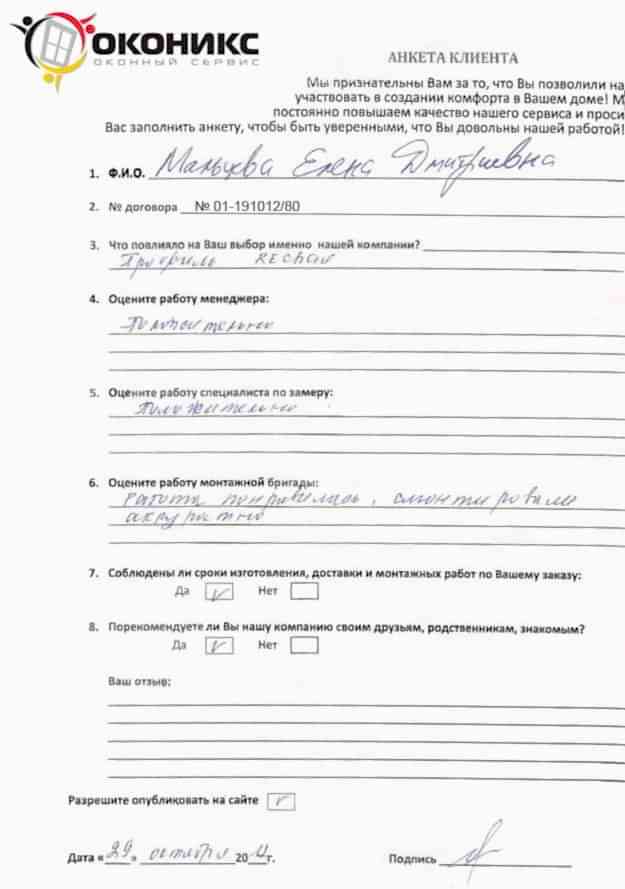 ОКОНИКС
ОКОННЫЙ СЕРВИС
АНКЕТА КЛИЕНТА
Мы признательны Вам за то, что Вы позволили на
участвовать в создании комфорта в Вашем доме! М
постоянно повышаем качество нашего сервиса и проси
Вас заполнить анкету, чтобы быть уверенными, что Вы довольны нашей работой!
1. Ф.И.О. Мальцева Елена Дмитриевна
2. № договора № 01-191012/80
3. Что повлияло на Ваш выбор именно нашей компании?
Профиль REchau
4. Оцените работу менеджера:
Положительно
5. Оцените работу специалиста по замеру:
Положительно
6. Оцените работу монтажной бригады:
Работа понравилась, смонтировали
аккуратно
7. Соблюдены ли сроки изготовления, доставки и монтажных работ по Вашему заказу:
Да V Нет
8. Порекомендуете ли Вы нашу компанию своим друзьям, родственникам, знакомым?
Да V Нет
Ваш отзыв:
Разрешите опубликовать на сайте V
Дата «29» октября 20 г. Подпись